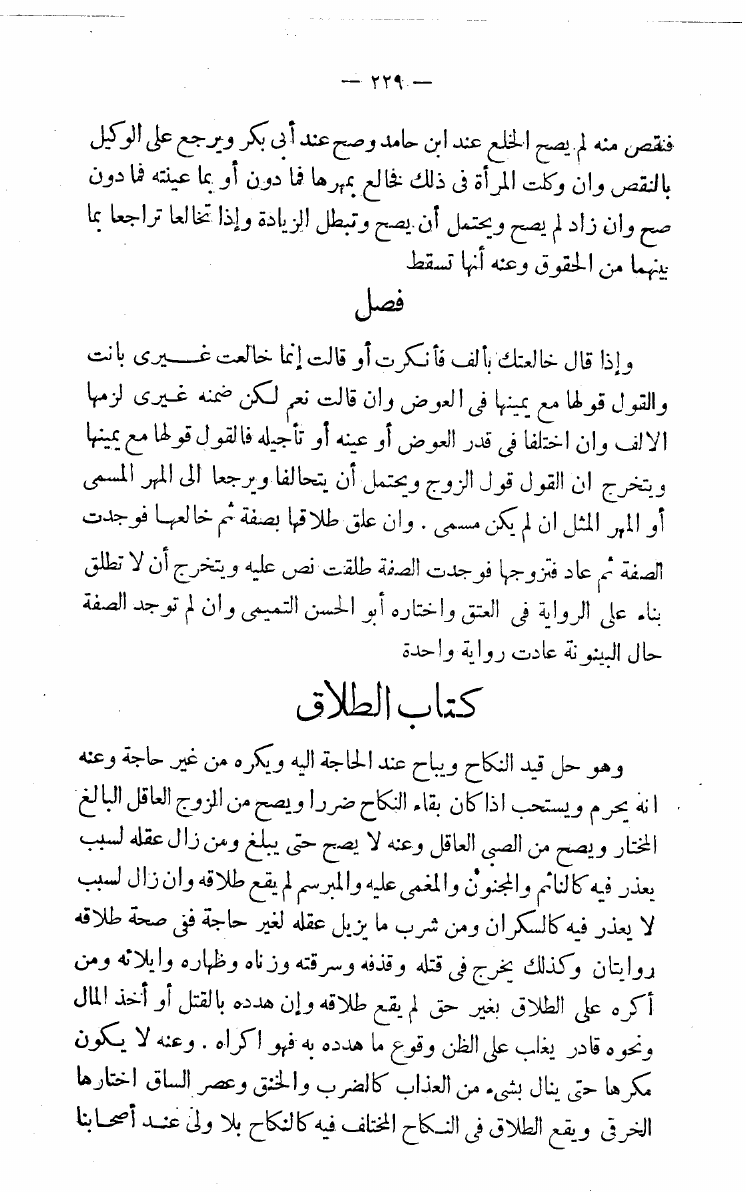 — ٢٢٩ —
فنقص منه لم يصح الخلع عند ابن حامد وصح عند أبى بكر ويرجع على الوكيل
بالنقص وان وكلت المرأة فى ذلك فخالع بمهرها فما دون أو بما عينته فما دون
صح وان زاد لم يصح ويحتمل أن يصح وتبطل الزيادة وإذا تخالعا تراجعا بما
بينهما من الحقوق وعنه أنها تسقط
فصل
وإذا قال خالعتك بألف فأنكرت أو قالت إنما خالعت غـــيرى بانت
والقول قولها مع يمينها فى العوض وان قالت نعم لكن ضمنه غـيرى لزمها
الالف وان اختلفا فى قدر العوض أو عينه أو تأجيله فالقول قولها مع يمينها
ويتخرج ان القول قول الزوج ويحتمل أن يتحالفا ويرجعا الى المهر المسمى
أو المهر المثل ان لم يكن مسمى . وان علق طلاقها بصفة ثم خالعها فوجدت
الصفة ثم عاد فتزوجها فوجدت الصفة طلقت نص عليه ويتخرج أن لا تطلق
بناء على الرواية فى العتق واختاره أبو الحسن التميمى وان لم توجد الصفة
حال البينونة عادت رواية واحدة
كتاب الطلاق
وهو حل قيد النكاح ويباح عند الحاجة اليه ويكره من غير حاجة وعنه
انه يحرم ويستحب اذا كان بقاء النكاح ضررا ويصح من الزوج العاقل البالغ
المختار ويصح من الصبى العاقل وعنه لا يصح حتى يبلغ ومن زال عقله لسبب
يعذر فيه كالنائم والمجنون والمغمى عليه والمبرسم لم يقع طلاقه وان زال لسبب
لا يعذر فيه كالسكران ومن شرب ما يزيل عقله لغير حاجة ففى صحة طلاقه
روايتان وكذلك يخرج فى قتله وقذفه وسرقته وزناه وظهاره وايلائه ومن
أكره على الطلاق بغير حق لم يقع طلاقه وإن هدده بالقتل أو أخذ المال
ونحوه قادر يغلب على الظن وقوع ما هدده به فهو اكراه . وعنه لا يكون
مكرها حتى ينال بشىء من العذاب كالضرب والخنق وعصر الساق اختارها
الخرقى ويقع الطلاق فى النكاح المختلف فيه كالنكاح بلا ولى عند أصحابنا